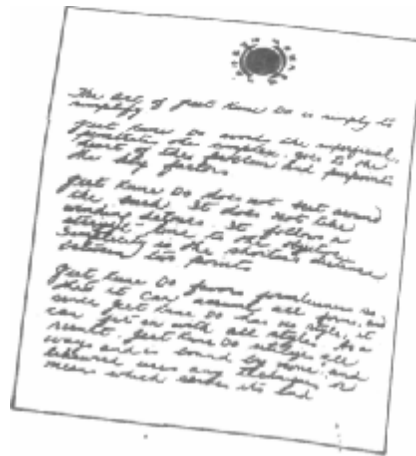 The art of Jeet Kune Do is simply to
simplify
Jeet Kune Do avoids the superficial,
penetrates the complex, goes to the
heart of the problem and pinpoints
the key factors
Jeet Kune Do does not beat around
the bush. It does not take
winding detours. It follows a
straight line to the objective.
Simplicity is the shortest distance
between two points
Jeet Kune Do favors formlessness so
that it can assume all forms, and
since Jeet Kune Do has no style, it
can fit in with all styles. As a
result, Jeet Kune Do utilizes all
ways and is bound by none, and
likewise uses any technique or
means which serves its end